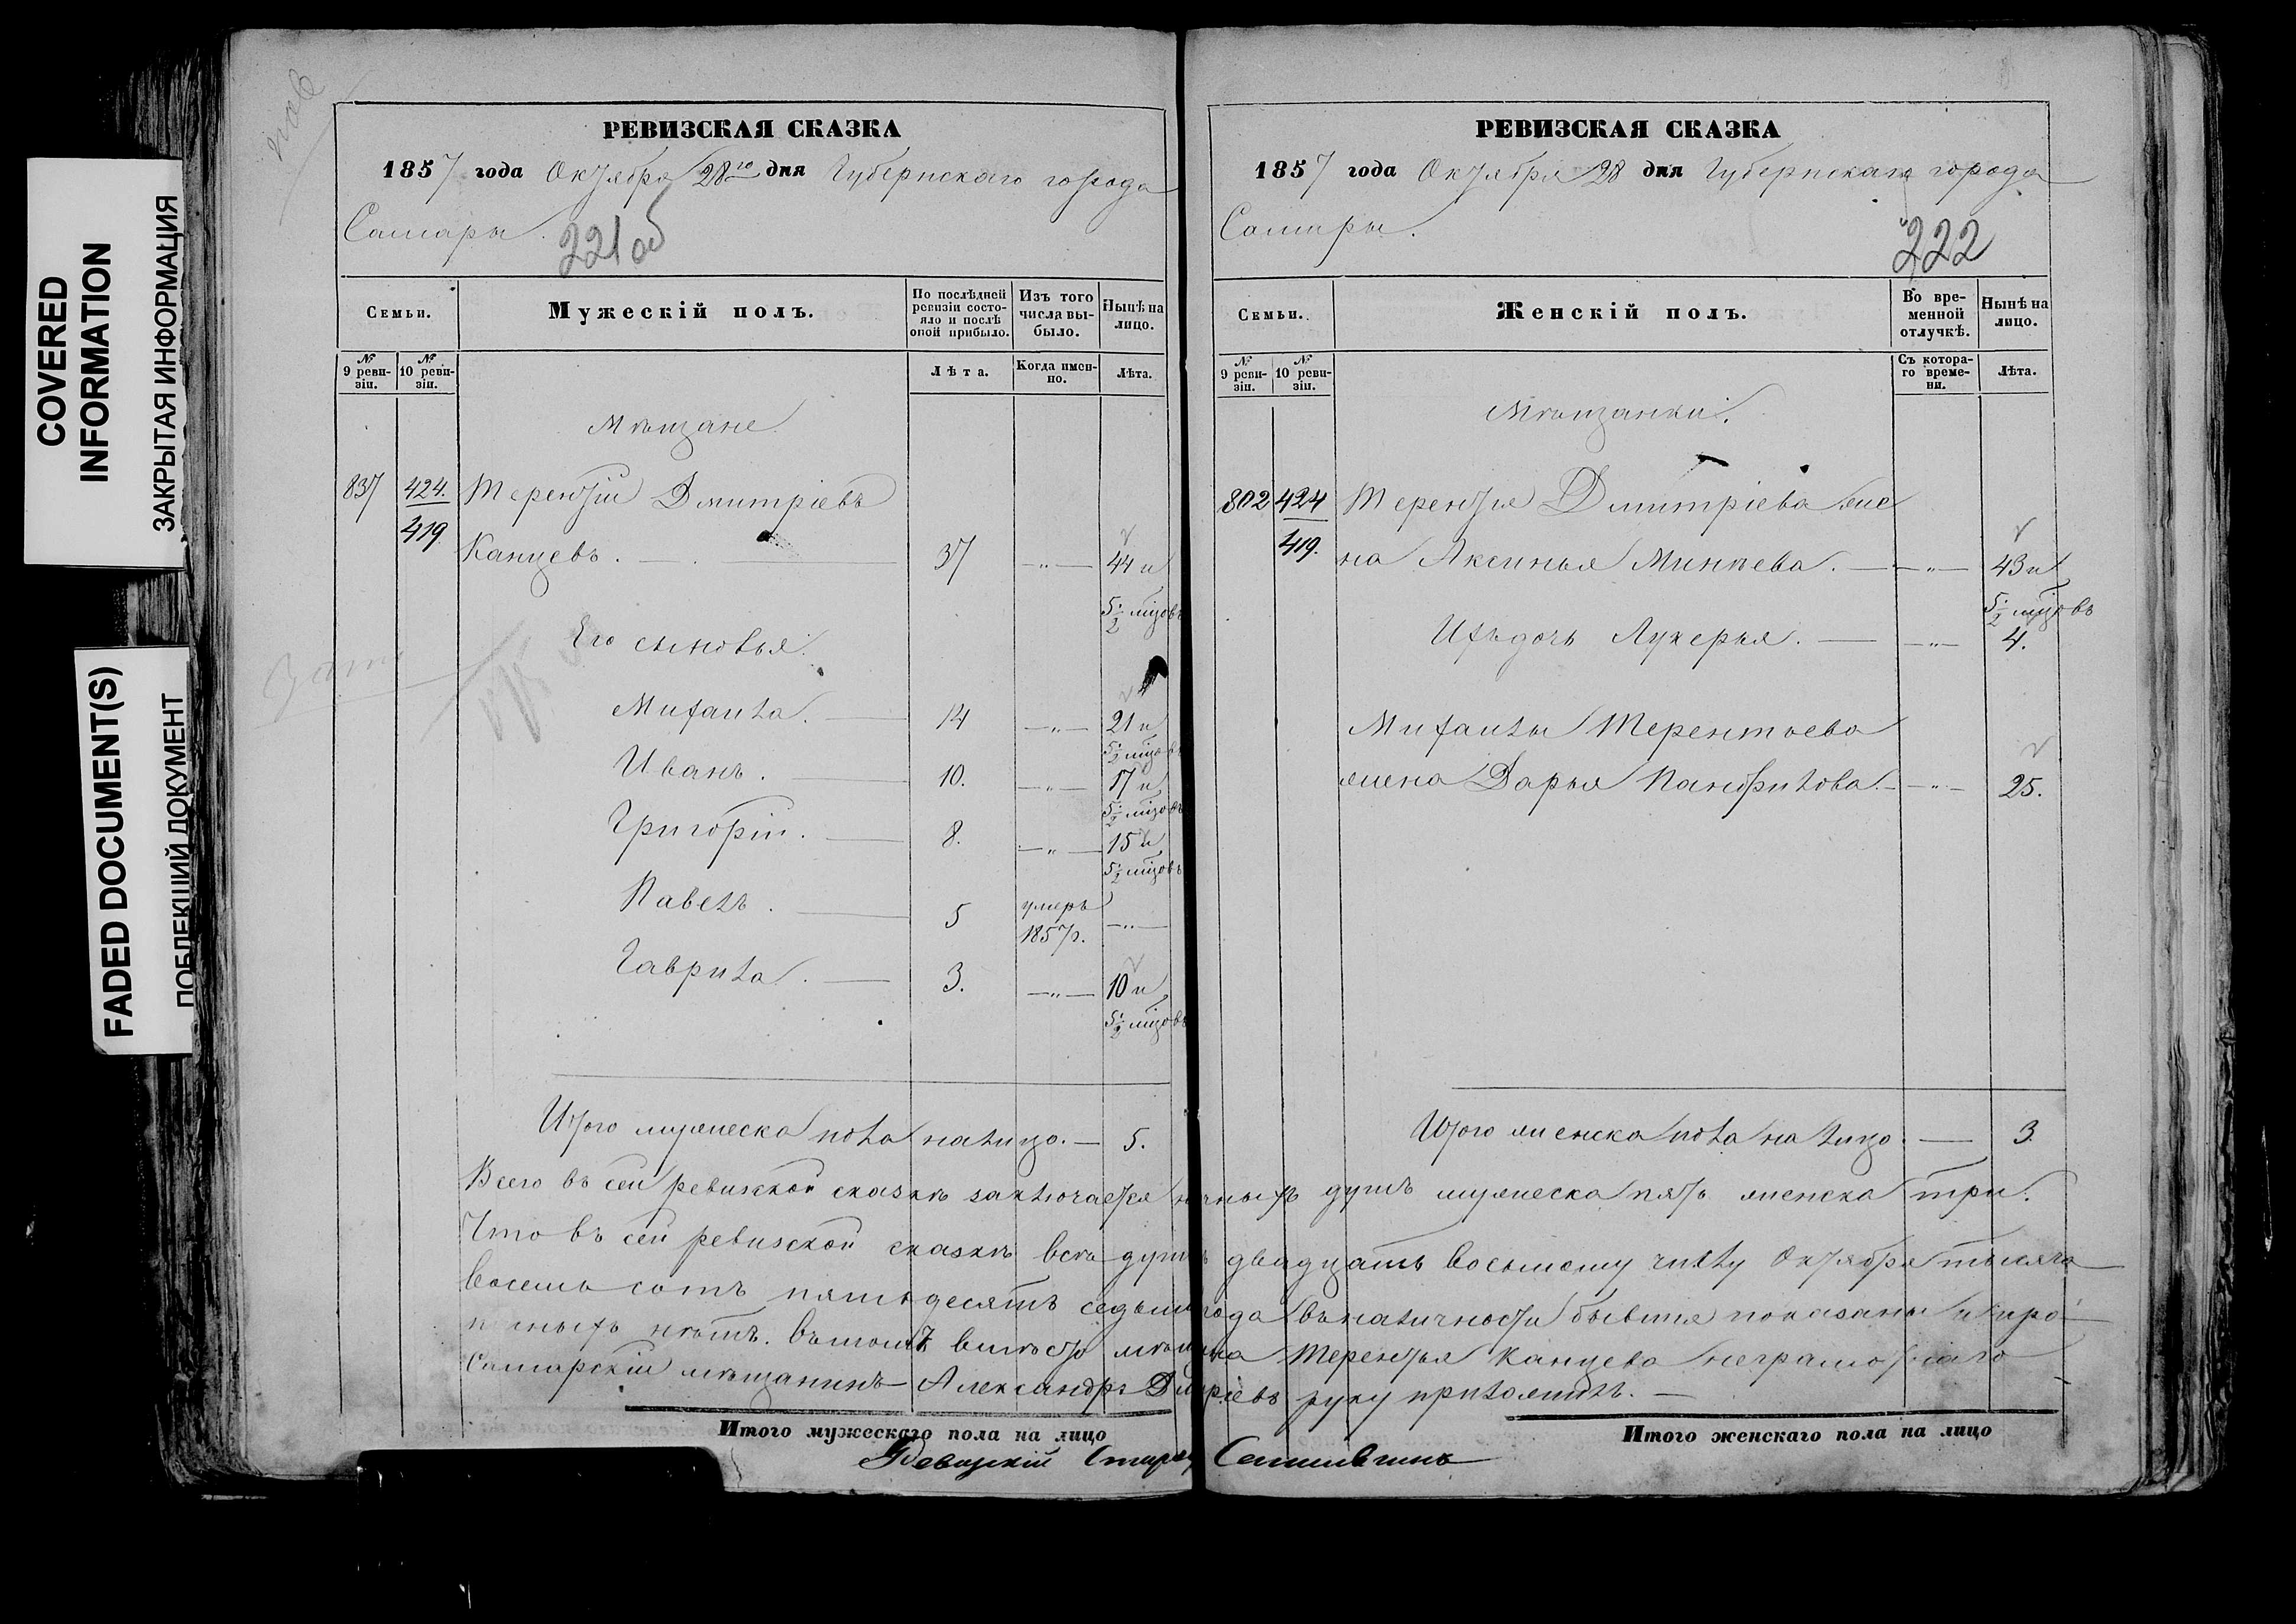 COVERED
INFORMATION
ЗАКРЫТАЯ ИНФОРМАЦИЯ
FADED DOCUMENT(S)
ПОБЛЕКШИЙ ДОКУМЕНТ
РЕВИЗСКАЯ СКАЗКА
1857 года Октября 28го дня Губернскаго города
Самары.
221 об
Семьи.
Мужескій полъ.
По послѣдней ревизіи состояло и послѣ оной прибыло.
Изъ того числа выбыло.
Нынѣ на лицо.
№ 9 ревизіи.
№ 10 ревизіи.
Лѣта.
Когда именно.
Лѣта.
Мѣщане
837 424. Терентій Дмитріевъ
419 Канцевъ. 37 — „ — 44 и
5 1/2 мцовъ
Его сыновья:
Михаила. 14 — „ — 21 и
5 1/2 мцовъ
Иванъ. 10. — „ — 17 и
5 1/2 мцовъ
Григорій. 8. — „ — 15 и
5 1/2 мцовъ
Павелъ. 5 умеръ 1857 г. — „ —
Гаврила. 3. — „ — 10 и
5 1/2 мцовъ
Итого мужеска пола налицо. — 5.
РЕВИЗСКАЯ СКАЗКА
1857 года Октября 28 дня Губернскаго города
Самары.
222
Семьи.
Женскій полъ.
Во временной отлучкѣ.
Нынѣ на лицо.
№ 9 ревизіи.
№ 10 ревизіи.
Съ котораго времени.
Лѣта.
Мѣщанки.
802 424 Терентья Дмитріева же
419. на Аксинья Минѣева. — „ — 43 и
5 1/2 мцовъ
Ихъ дочь Лукерья. — „ — 4.
Михаилы Терентьева
жена Дарья Панфилова. — „ — 25.
Итого женска пола на лицо. — 3.
Всего въ сей ревизской сказкѣ заключается душъ мужеска пять женска три.
Что въ сей ревизской сказкѣ всѣ души двадцать восьмому числу Октября тысяча
восемь сотъ пятьдесятъ седьмаго года въ наличности бывшія показаны и про
писныхъ нѣтъ. Въ томъ вмѣсто мѣщанина Терентья Канцева неграмотнаго
Самарскій мѣщанинъ Александръ Дмитріевъ руку приложилъ.
Итого мужескаго пола на лицо
Итого женскаго пола на лицо
Ревизскій